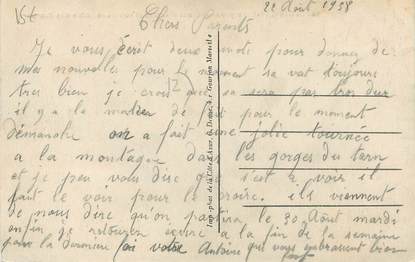 22 Août 1938
Chers Parents
Je vous écrit deux mots pour donner de
mes nouvelles pour le moment sa vat toujours
tres bien je crois que sa sera pas trop dur
il y a la de pour le moment
démanche on a fait une jolie tournée
a la montagne dans les gorges du tarn
et je peu vous dire s'est a voir il
faut le voir pour le croire. ils viennent
de nous dire qu'on partira le 30 Août mardi
enfin je retourne écrire a la fin de la semaine
pour la dernière foi votre Antoine qui vous embrassent bien
fort